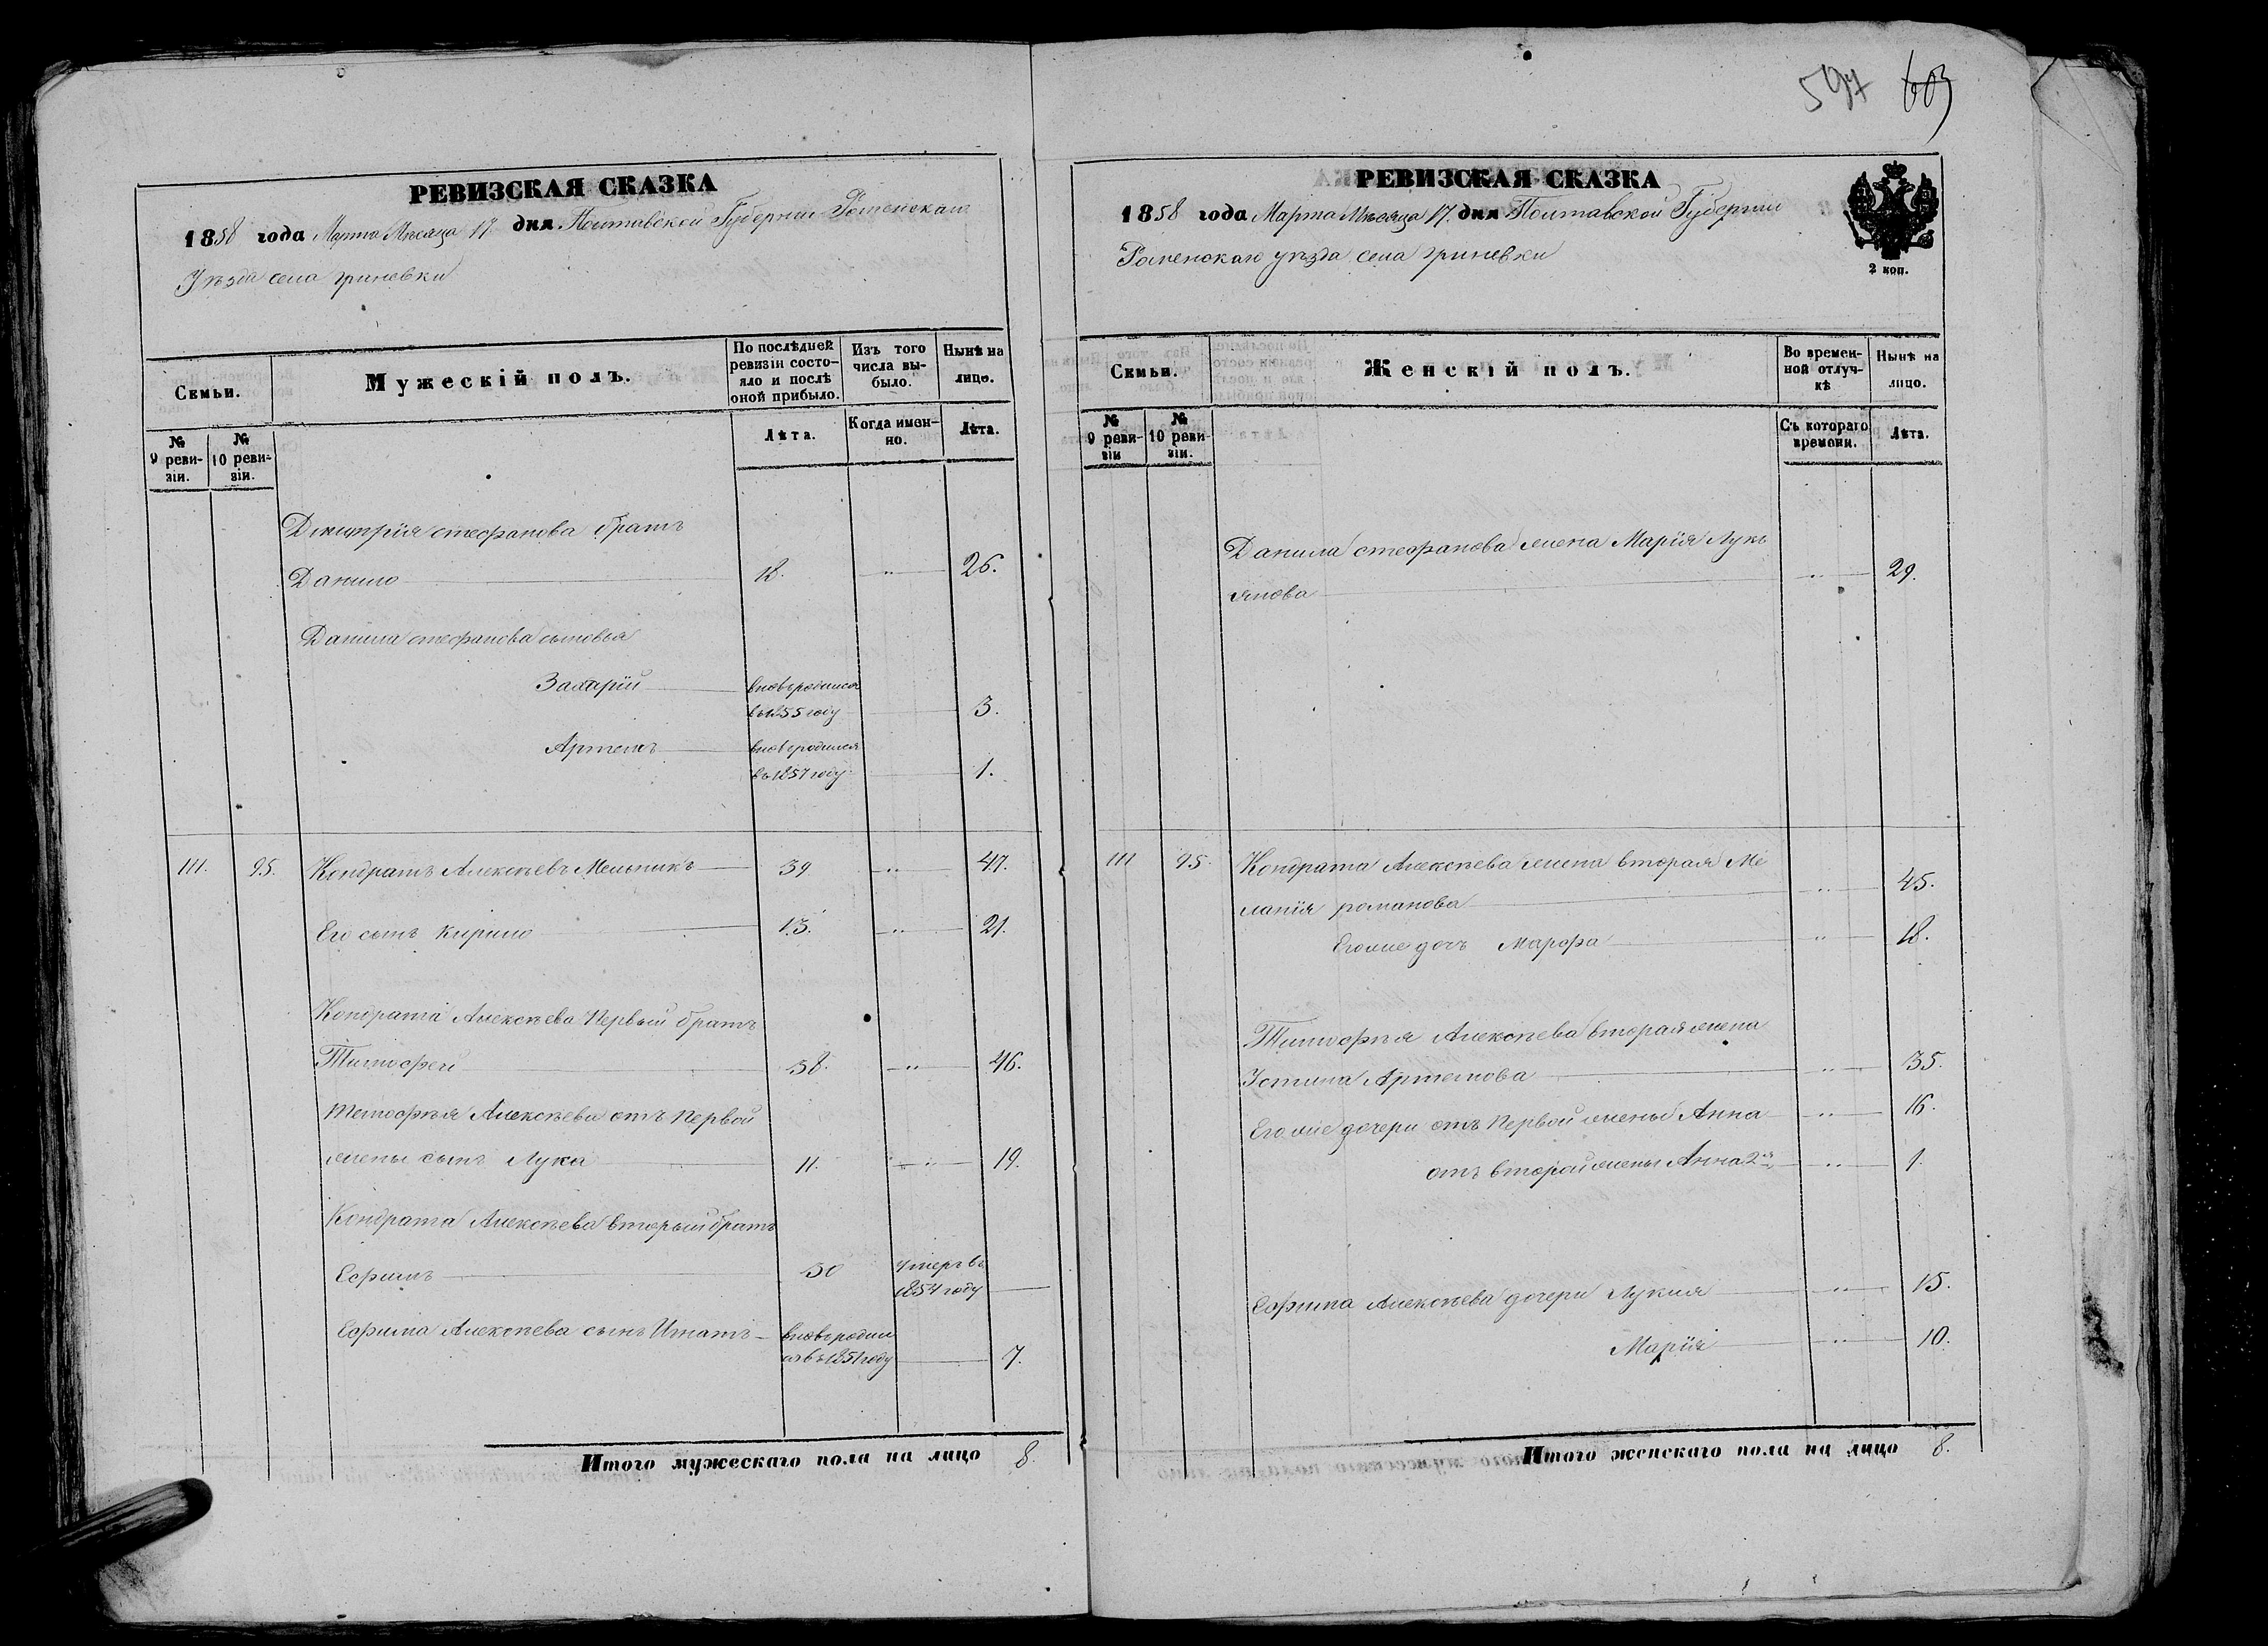 597 603
РЕВИЗСКАЯ СКАЗКА
1858 года Марта Месяца 17 дня Полтавской Губернии Роменскаго
Уѣзда села Гриневки
Семьи.
Мужескій полъ.
По послѣдней
ревизіи состо-
яло и послѣ
оной прибыло.
Изъ того
числа вы-
было.
Нынѣ на
лицо.
№
9 реви-
зіи.
№
10 реви-
зіи.
Лѣта.
Когда имен-
но.
Лѣта.
Дмитрія стефанова братъ
Данило 18. " 26.
Данила стефанова сыновья
Захарій вновьродился
въ1855 году 3.
Артемъ вновьродился
въ1857 году 1.
111. 95. Кондратъ Алексѣевъ Мельникъ 39 " 47.
Его сынъ Кирило 13. " 21.
Кондрата Алексѣева Первый братъ
Тимофей 38. " 46.
Тимофѣя Алексѣева отъ Первой
жены сынъ Лука 11. " 19.
Кондрата Алексѣева вторый братъ
Ефимъ 30 умеръ въ
1854 году
Ефима Алексѣева сынъ Игнатъ вновьродил
ся въ 1851 году 7.
Итого мужескаго пола на лицо 8.
РЕВИЗСКАЯ СКАЗКА
1858 года Марта Мѣсяца 17. дня Полтавской Губерніи
Роменскаго уѣзда села Гриневки
2 коп.
Семьи.
Женскій полъ.
Во времен-
ной отлуч-
кѣ
Нынѣ на
лицо.
№
9 реви-
зіи
№
10 реви-
зіи.
Съ котораго
времени.
Лѣта.
Данила стефанова жена Марія Лукь
янова " 29.
111 95. Кондрата Алексѣева жена вторая Ме
ланія романова " 45.
Егоже дочь Марфа " 18.
Тимофѣя Алексѣева вторая жена
Устина Артемова " 35.
Егоже дочери отъ Первой жены Анна " 16.
отъ второй жены Анна 2я " 1.
Ефима Алексѣева дочери Лукия " 15.
Марія " 10.
Итого женскаго пола на лицо 8.